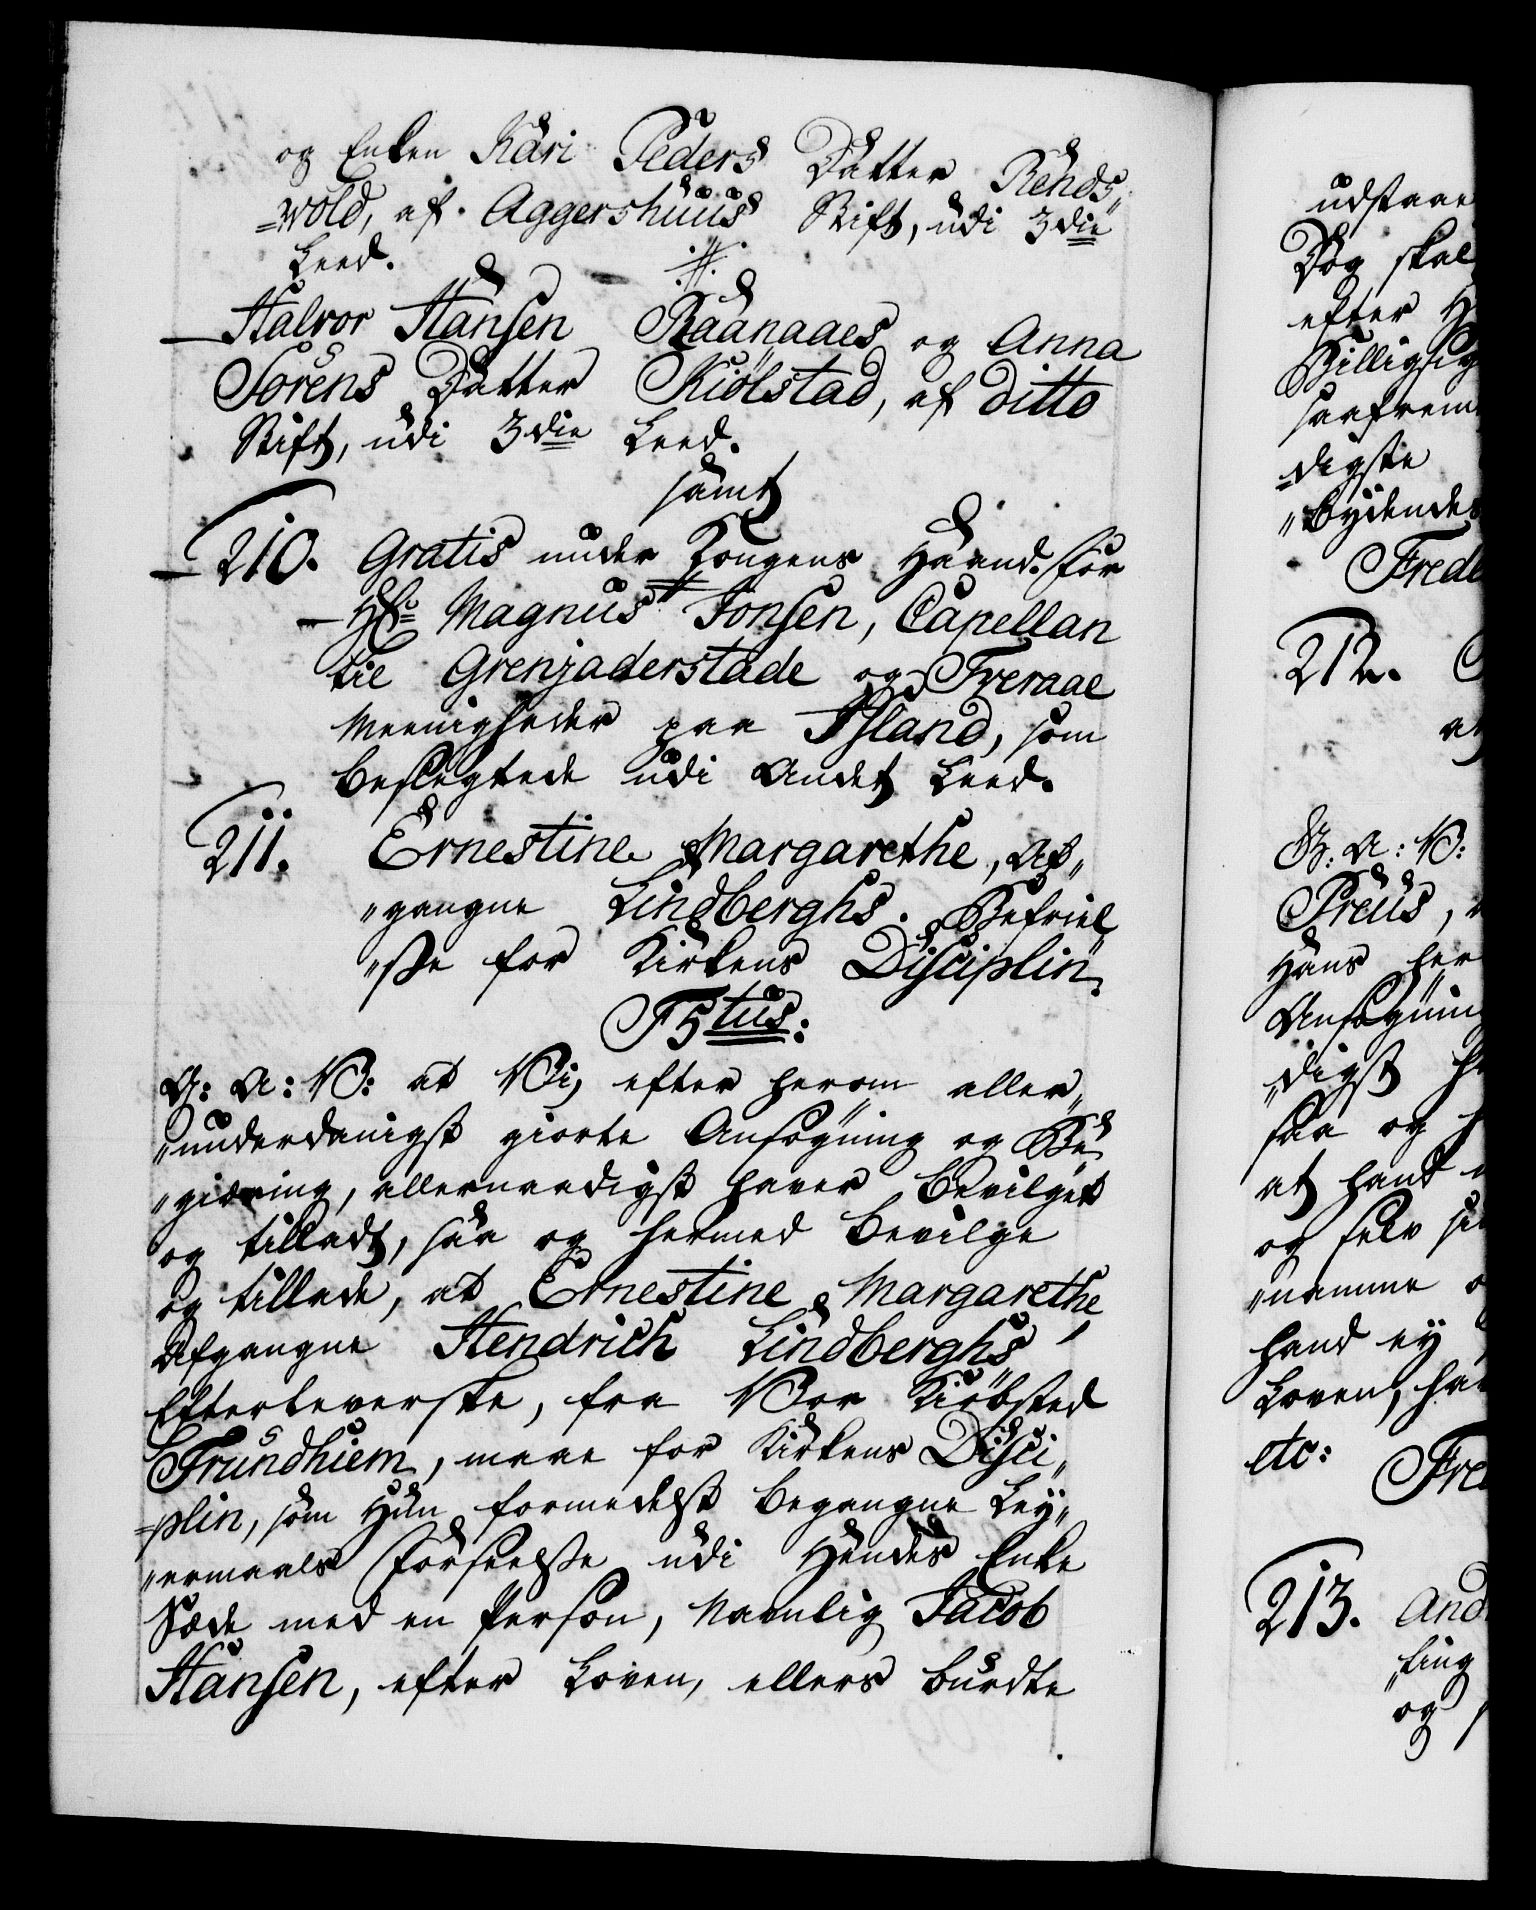 og Enken Kari Peders Datter Rends„
=wold, af Aggershuus Stift, udi 3die
Leed.
Halvor Hansen Raanaaes og Anna
Sørens Datter Kiølstad, af ditto
Stift, udi 3die Leed.
samt
210. Gratis under Kongens Haand. for
Hr: Magnus Jonsen, Capellan
til Grenjaderstade og Tveraae
Meenigheder paa Island, som
beslegtede udi Andet Leed.
211. Ernestine Margarethe, Af„
„gangne Lindberghs. Befriel„
„ße for Kirkens Disciplin.
F5tus:
G: A: V: at Vi, efter herom aller„
„underdanigst giorte Ansøgning og Be„
„giæring, allernaadigst haver bevilget
og tilladt, saa og hermed bevilge
og tillade, at Ernestine Margarethe,
Afgangne Hendrich Lindberghs
Efterleverske, fra Vor Kiøbsted
Trundhiem, maae for Kirkens Disci„
=plin, som Hun formedelst begangne Ley„
„ermaals Forseelße udi Hendes Enke
Sæde med en Person, Navnlig Jacob
Hansen, efter Loven, ellers burdte
udstaae
Dog skal
efter H
Billigsig
saafrem
=digste
„bydendes
Frede
212.
at
G: A: V:
Preus,
Hans her
Ansøgnin
„digst h
saa og h
at hand
og selv si
„namme o
hand ey
Loven, ha
etc: Fre
213. And
„ling
og